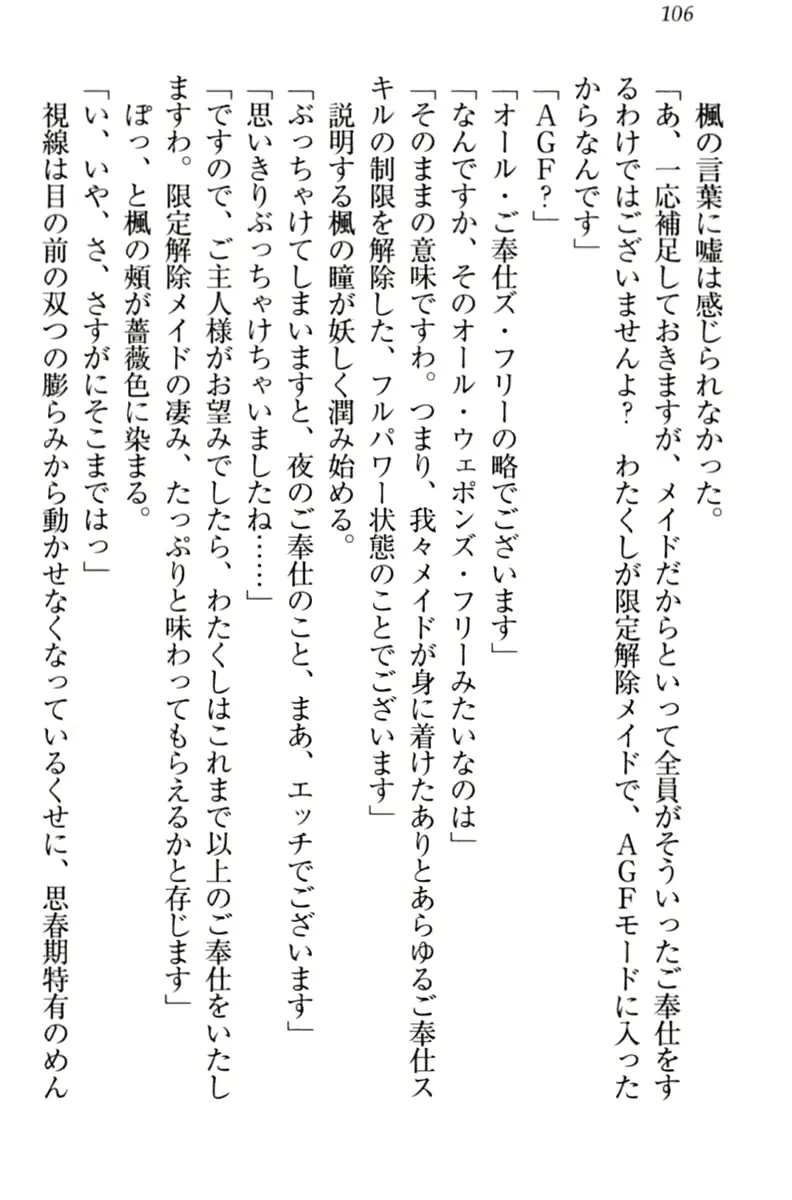 106
楓の言葉に嘘は感じられなかった。
「あ、一応補足しておきますが、メイドだからといって全員がそういったご奉仕をす
るわけではございませんよ？　わたくしが限定解除メイドで、ＡＧＦモードに入った
からなんです」
「ＡＧＦ？」
「オール・ご奉仕ズ・フリーの略でございます」
「なんですか、そのオール・ウェポンズ・フリーみたいなのは」
「そのままの意味ですわ。つまり、我々メイドが身に着けたありとあらゆるご奉仕ス
キルの制限を解除した、フルパワー状態のことでございます」
説明する楓の瞳が妖しく潤み始める。
「ぶっちゃけてしまいますと、夜のご奉仕のこと、まあ、エッチでございます」
「思いきりぶっちゃけちゃいましたね……」
「ですので、ご主人様がお望みでしたら、わたくしはこれまで以上のご奉仕をいたし
ますわ。限定解除メイドの凄み、たっぷりと味わってもらえるかと存じます」
ぽっ、と楓の頬が薔薇色に染まる。
「い、いや、さ、さすがにそこまではっ」
視線は目の前の双つの膨らみから動かせなくなっているくせに、思春期特有のめん